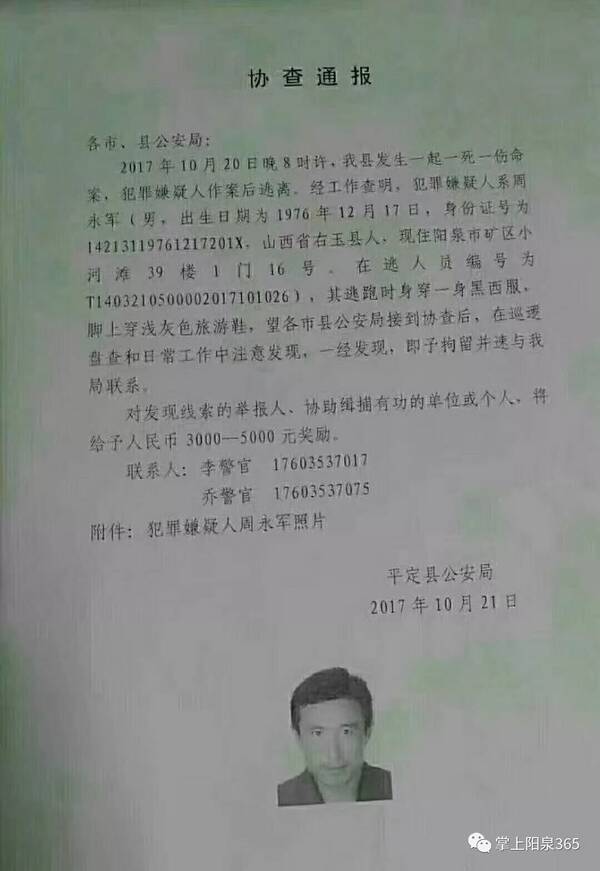 协查通报
各市、县公安局：
2017年10月20日晚8时许，我县发生一起一死一伤命
案，犯罪嫌疑人作案后逃离。经工作查明，犯罪嫌疑人系周
永军（男，出生日期为1976年12月17日，身份证号为
14213119761217201X，山西省右玉县人，现住阳泉市矿区小
河滩39楼1门16号。在逃人员编号为
T1403210500002017101026），其逃跑时身穿一身黑西服，
脚上穿浅灰色旅游鞋，望各市县公安局接到协查后，在巡逻
盘查和日常工作中注意发现，一经发现，即予拘留并速与我
局联系。
对发现线索的举报人、协助缉捕有功的单位或个人，将
给予人民币3000—5000元奖励。
联系人：李警官 17603537017
乔警官 17603537075
附件：犯罪嫌疑人周永军照片
平定县公安局
2017年10月21日
掌上阳泉365